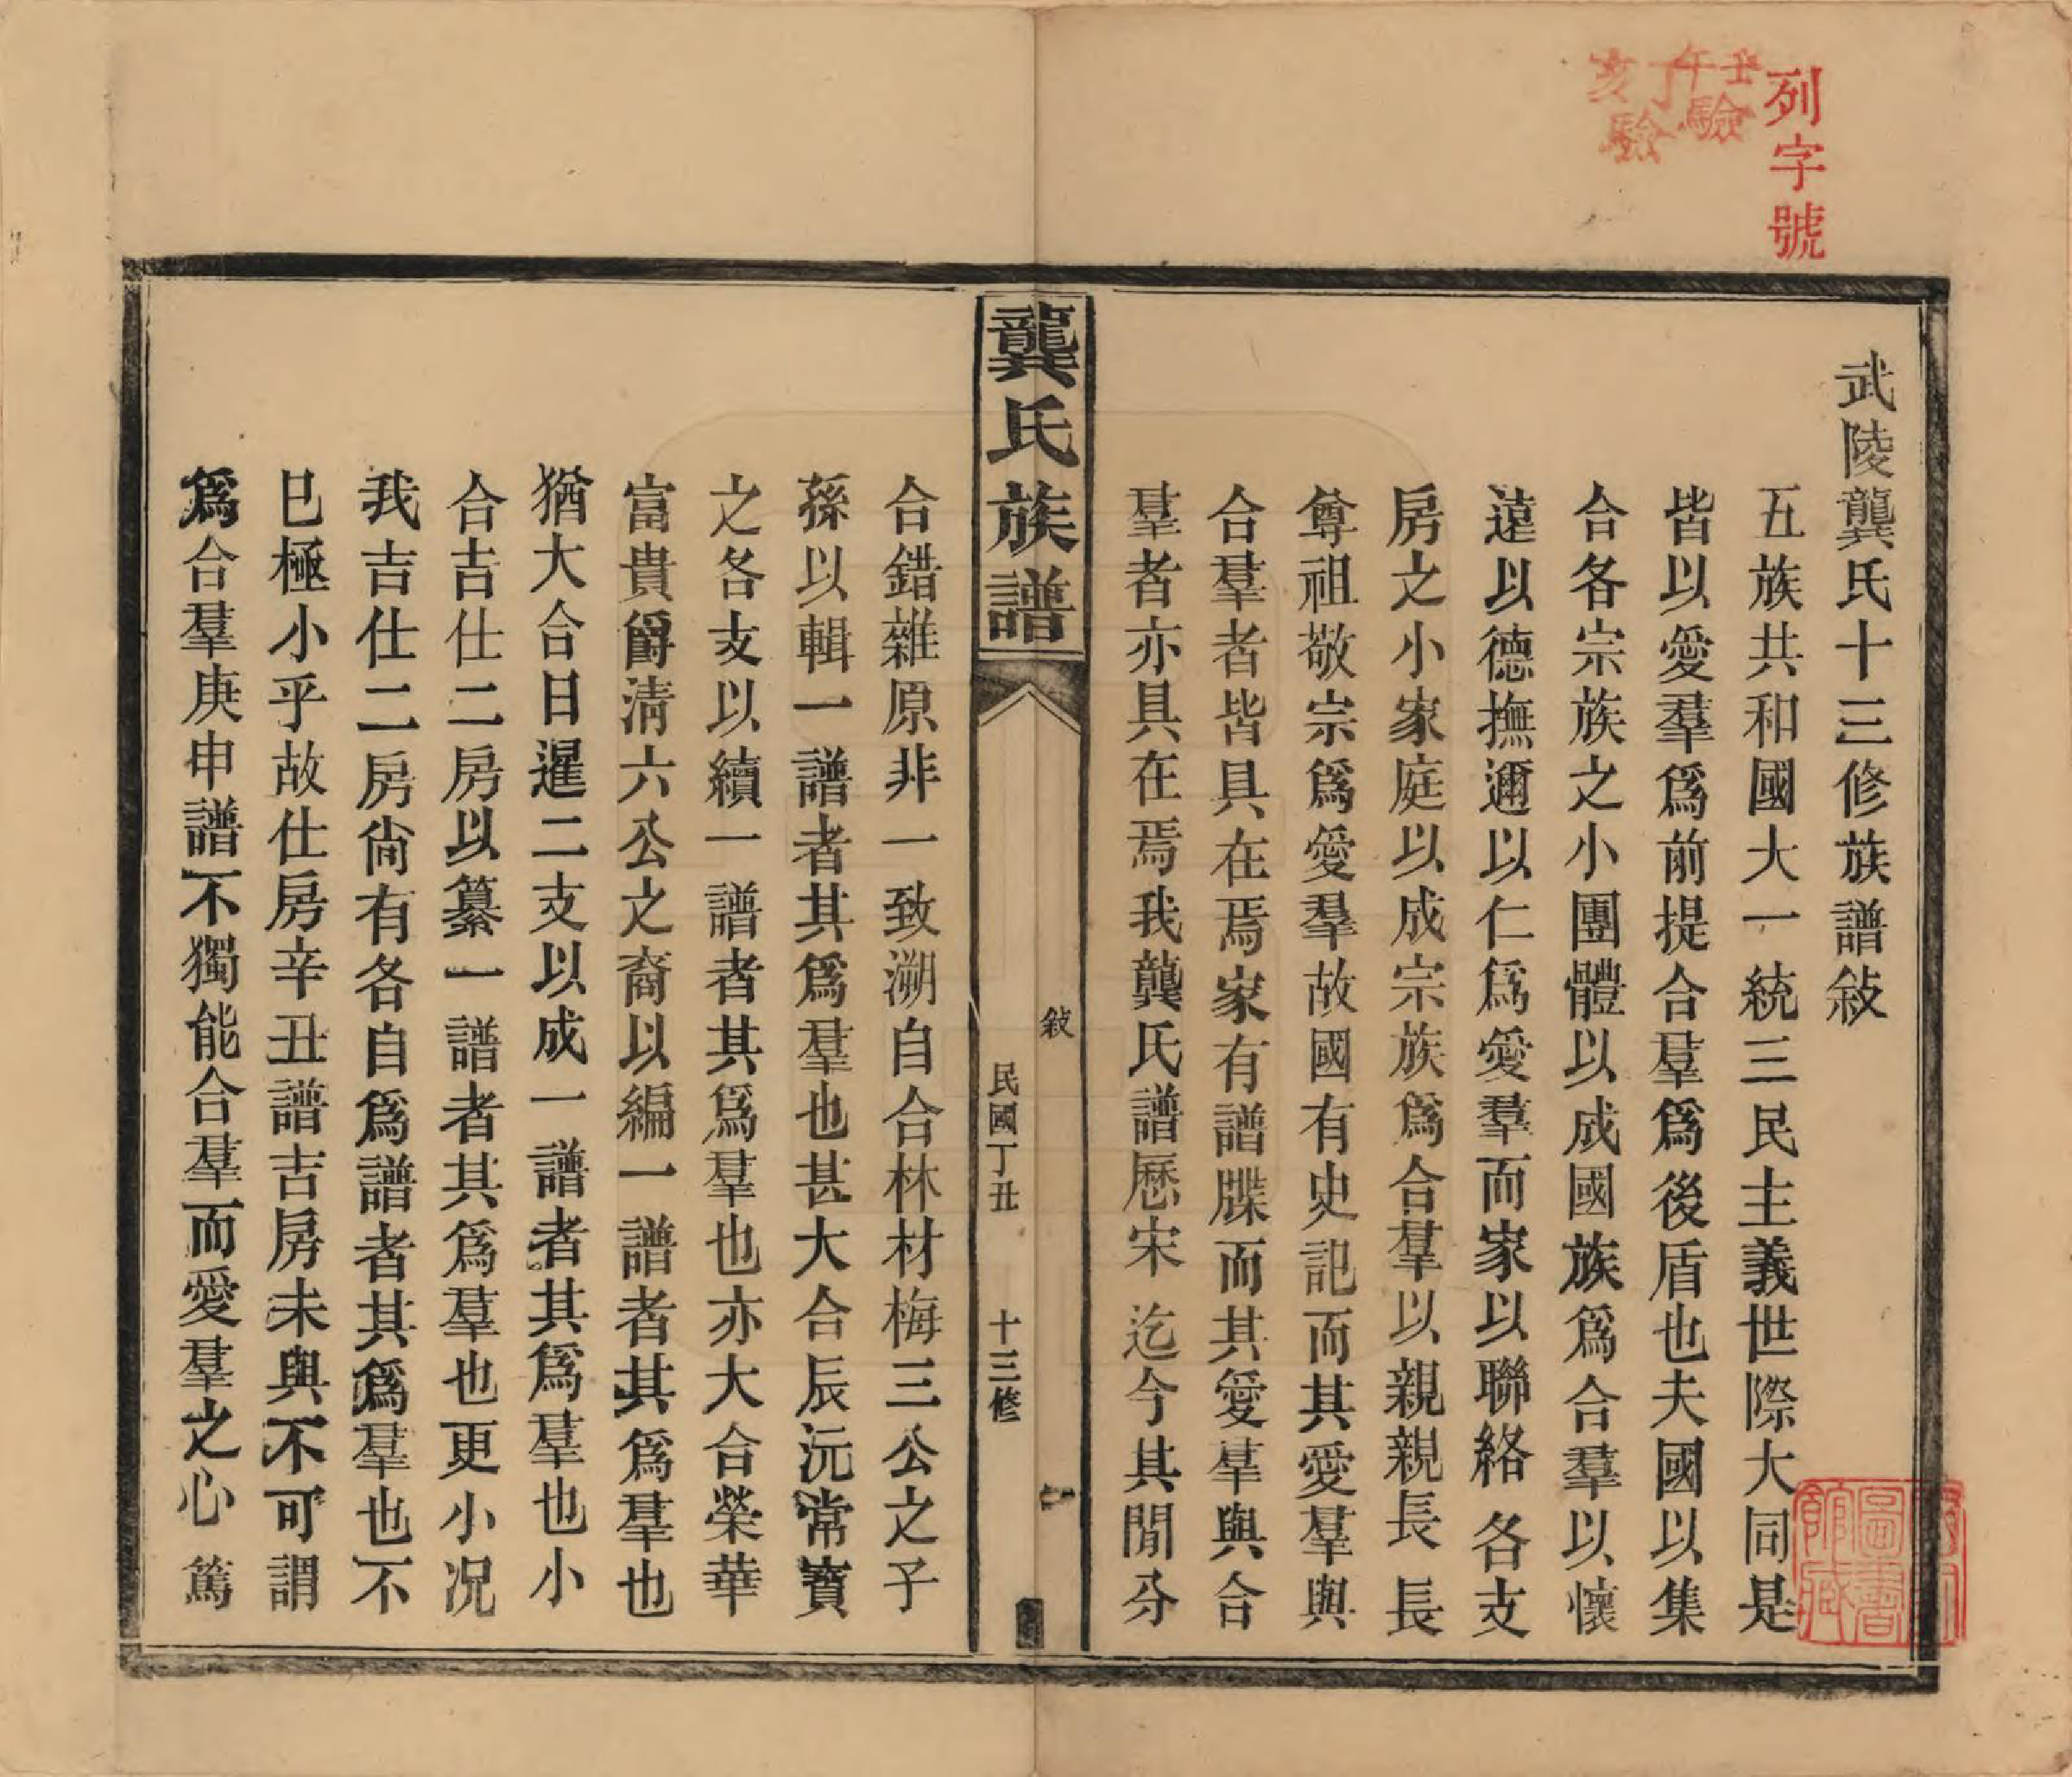 列字號
壬午驗
丁亥驗
武陵龔氏十三修族譜敍
五族共和國大一統三民主義世際大同是
皆以愛羣爲前提合羣爲後盾也夫國以集
合各宗族之小團體以成國族爲合羣以懷
遠以德撫邇以仁爲愛羣而家以聯絡各支
房之小家庭以成宗族爲合羣以親親長長
尊祖敬宗爲愛羣故國有史記而其愛羣與
合羣者皆具在焉家有譜牒而其愛羣與合
羣者亦具在焉我龔氏譜歷宋迄今其閒分
龔氏族譜
敍
一
民國丁丑
十三修
合錯雜原非一致溯自合林材梅三公之子
蓀以輯一譜者其爲羣也甚大合辰沅常寶
之各支以續一譜者其爲羣也亦大合榮華
富貴爵清六公之裔以編一譜者其爲羣也
猶大合日暹二支以成一譜者其爲羣也小
合吉仕二房以纂一譜者其爲羣也更小况
我吉仕二房尙有各自爲譜者其爲羣也不
巳極小乎故仕房辛丑譜吉房未與不可謂
爲合羣庚申譜不獨能合羣而愛羣之心篤